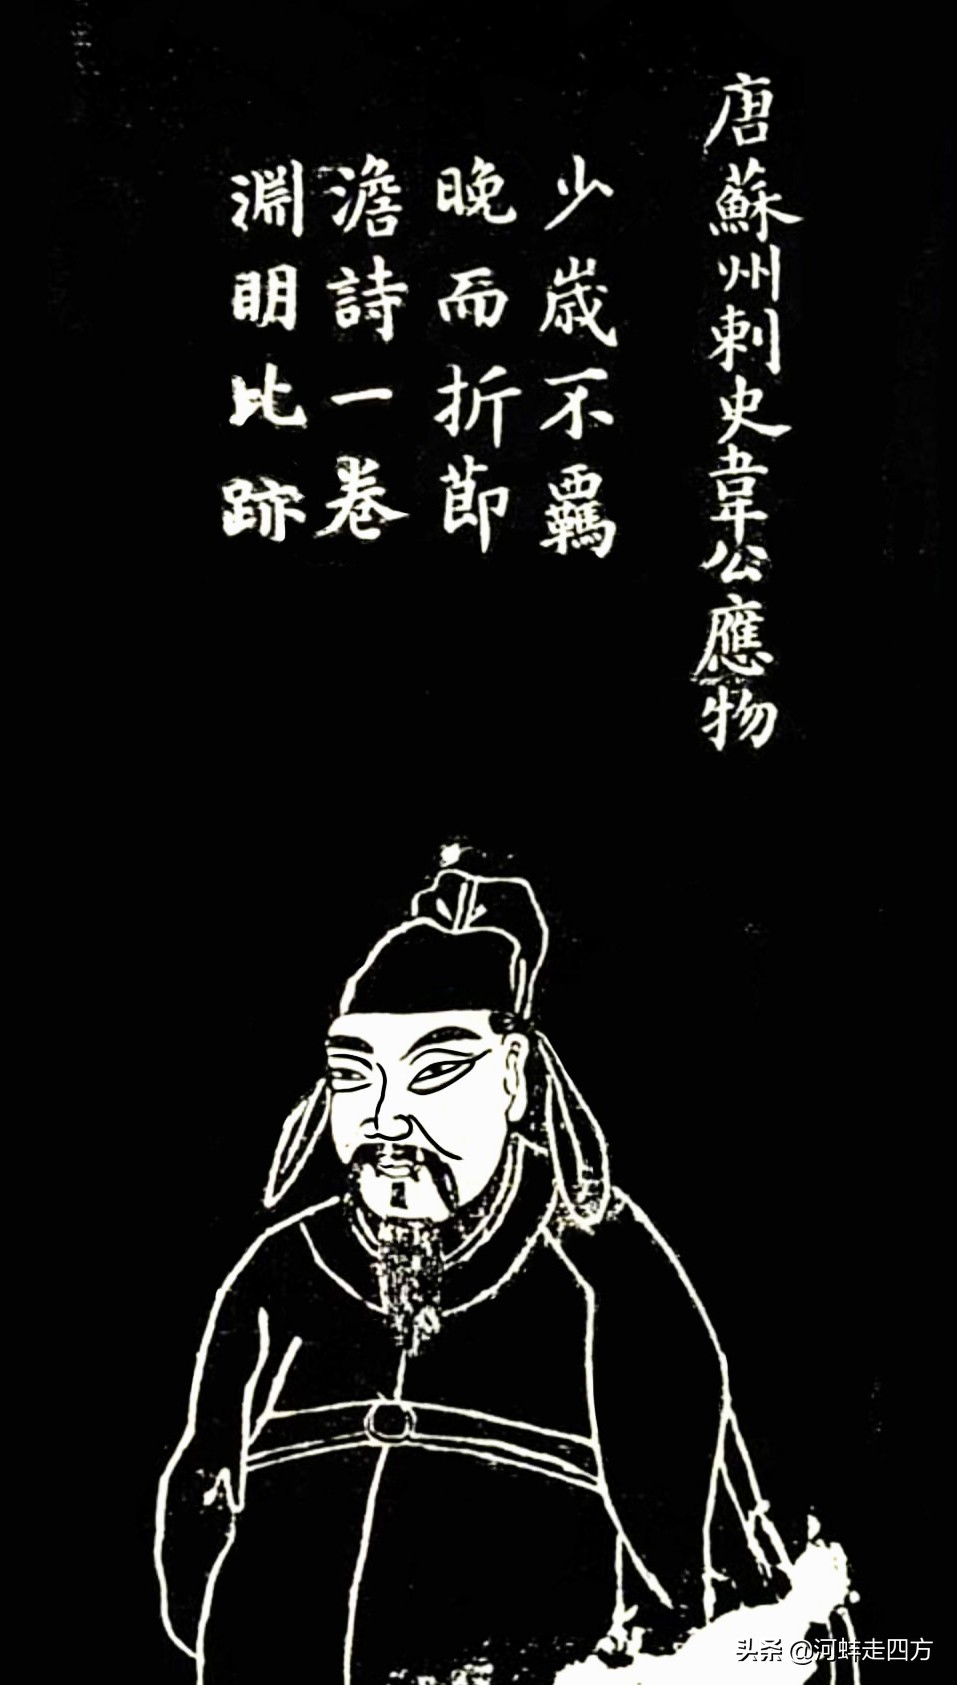 唐蘇州刺史韋公應物
少歲不羈
晚而折節
澹詩一卷
淵明比跡
头条 @河蚌走四方